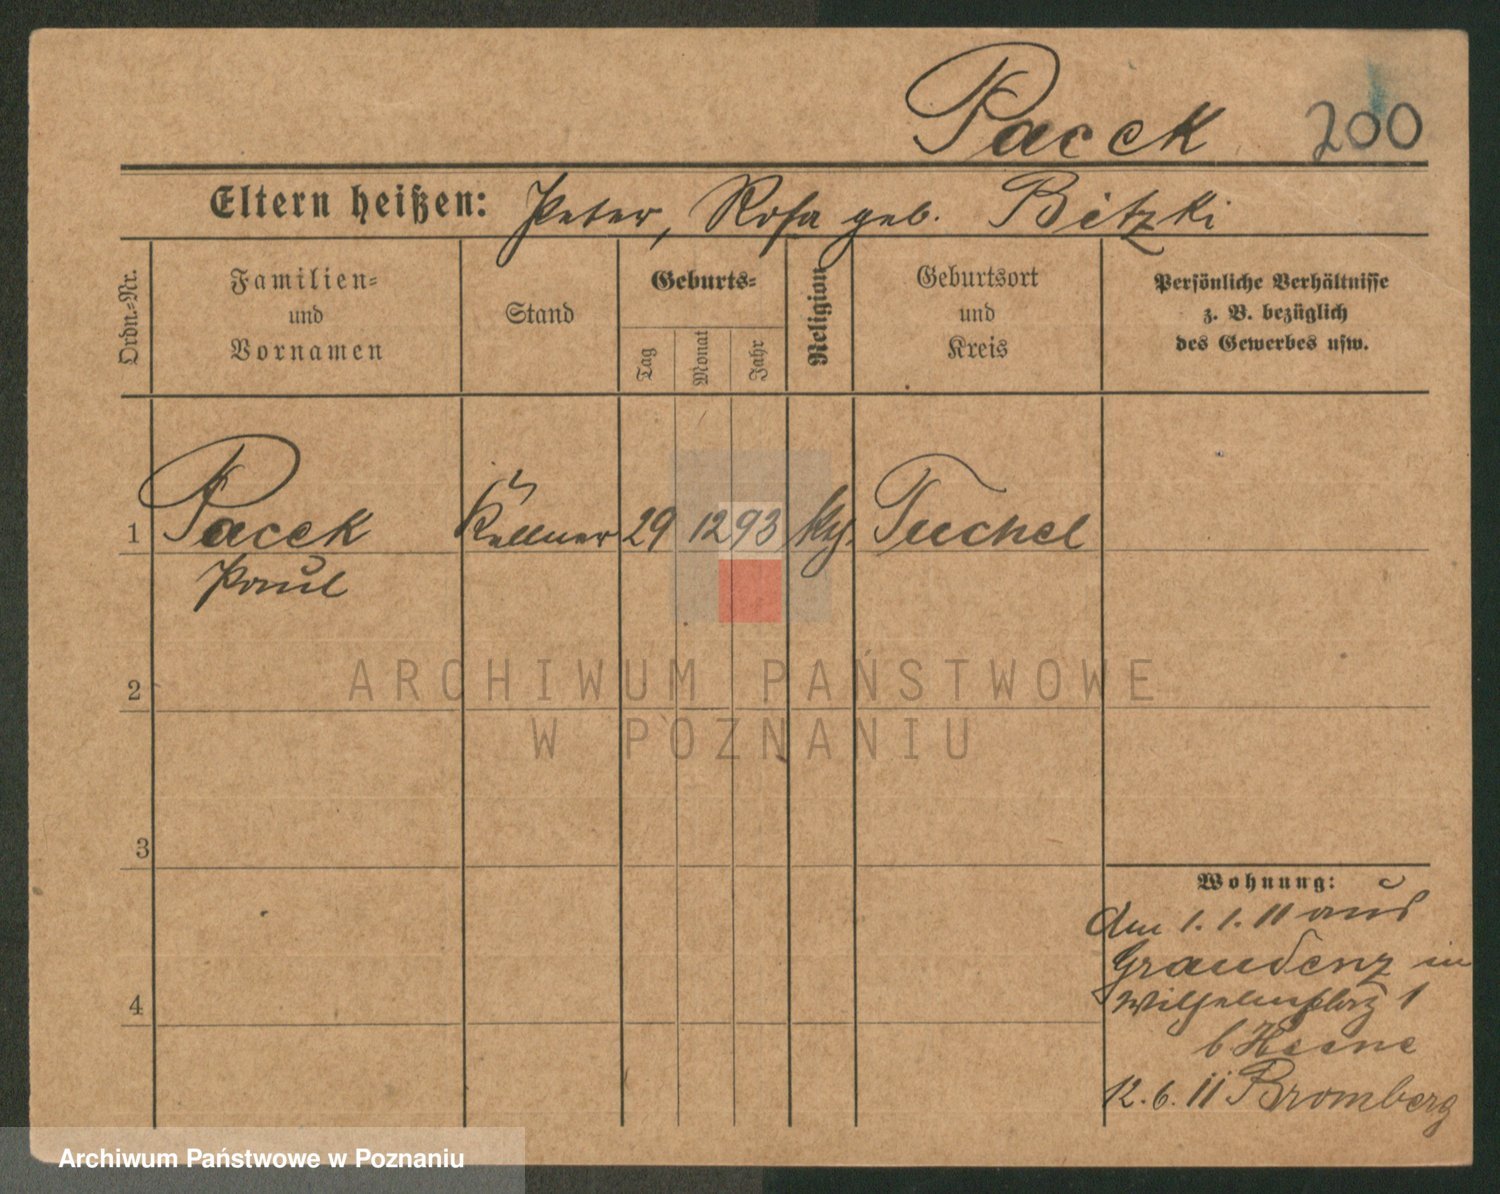 Pacek 200
Eltern heißen: Peter, Rosa geb. Bitzki
Ordn.-Nr.
Familien-
und
Vornamen
Stand
Geburts-
Tag
Monat
Jahr
Religion
Geburtsort
und
Kreis
Persönliche Verhältnisse
z. B. bezüglich
des Gewerbes usw.
1 Pacek Kellner 29 12 93 Tuchel
Paul
2
3
4
Wohnung:
Am 1. 1. 11 aus
Graudenz in
Wilhelmsplatz 1
b
12. 6. 11 Bromberg
ARCHIWUM PAŃSTWOWE
W POZNANIU
Archiwum Państwowe w Poznaniu